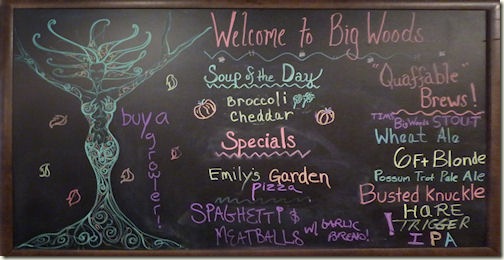 Welcome to Big Woods
Soup of the Day
Broccoli
Cheddar
Specials
Emily's Garden
Pizza
SPAGHETTI &
MEATBALLS w/ GARLIC
BREAD!
buy a
growler!
"Quaffable"
Brews!
Big Woods STOUT
Wheat Ale
6Ft Blonde
Possum Trot Pale Ale
Busted Knuckle
HARE
TRIGGER
IPA